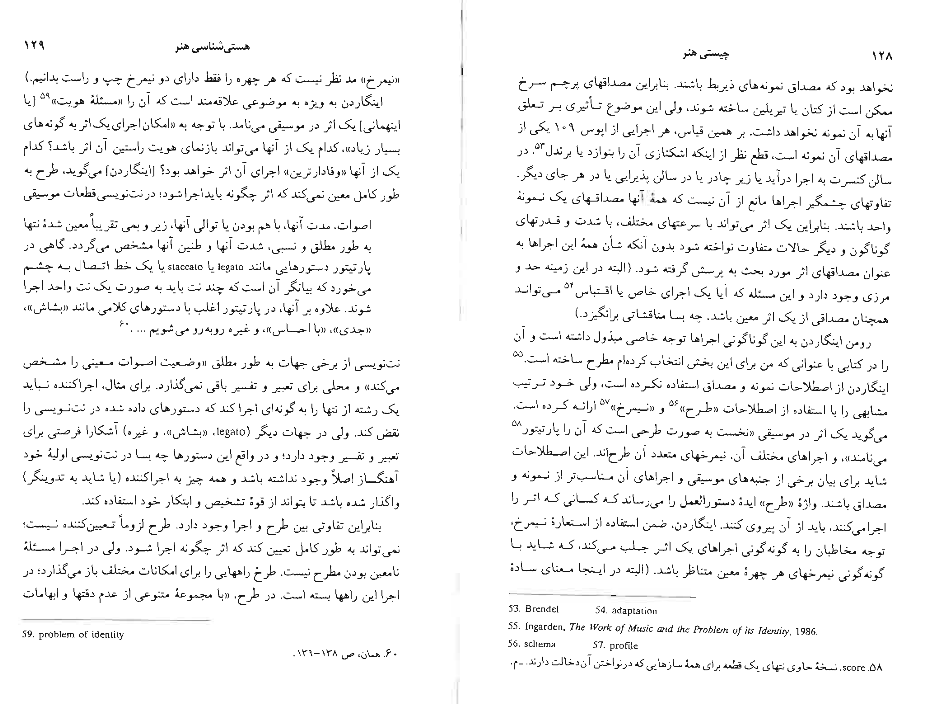 ۱۲۸
چیستی هنر
نخواهد بود که مصداق نمونه‌های ذیربط باشند. بنابراین مصداقهای پرچم سرخ
ممکن است از کتان یا تیریلین ساخته شوند، ولی این موضوع تأثیری بر تعلق
آنها به آن نمونه نخواهد داشت. بر همین قیاس، هر اجرایی از اپوس ۱۰۹ یکی از
مصداقهای آن نمونه است، قطع نظر از اینکه اشکنازی آن را بنوازد یا برندل۵۳، در
سالن کنسرت به اجرا درآید یا زیر چادر یا در سالن پذیرایی یا در هر جای دیگر.
تفاوتهای چشمگیر اجراها مانع از آن نیست که همهٔ آنها مصداقهای یک نمونهٔ
واحد باشند. بنابراین یک اثر می‌تواند با سرعتهای مختلف، با شدت و قدرتهای
گوناگون و دیگر حالات متفاوت نواخته شود بدون آنکه شأن همهٔ این اجراها به
عنوان مصداقهای اثر مورد بحث به پرسش گرفته شود. (البته در این زمینه حد و
مرزی وجود دارد و این مسئله که آیا یک اجرای خاص یا اقتباس۵۴ می‌تواند
همچنان مصداقی از یک اثر معین باشد، چه بسا مناقشاتی برانگیزد.)
رومن اینگاردن به این گوناگونی اجراها توجه خاصی مبذول داشته است و آن
را در کتابی با عنوانی که من برای این بخش انتخاب کرده‌ام مطرح ساخته است.۵۵
اینگاردن از اصطلاحات نمونه و مصداق استفاده نکرده است، ولی خود ترتیب
مشابهی را با استفاده از اصطلاحات «طرح»۵۶ و «نیمرخ»۵۷ ارائه کرده است.
می‌گوید یک اثر در موسیقی «نخست به صورت طرحی است که آن را پارتیتور۵۸
می‌نامند»، و اجراهای مختلف آن، نیمرخهای متعدد آن طرح‌اند. این اصطلاحات
شاید برای بیان برخی از جنبه‌های موسیقی و اجراهای آن مناسب‌تر از نمونه و
مصداق باشند. واژهٔ «طرح» ایدهٔ دستورالعمل را می‌رساند که کسانی که اثر را
اجرا می‌کنند، باید از آن پیروی کنند. اینگاردن، ضمن استفاده از استعارهٔ نیمرخ،
توجه مخاطبان را به گونه‌گونی اجراهای یک اثر جلب می‌کند، که شاید با
گونه‌گونی نیمرخهای هر چهرهٔ معین متناظر باشد. (البته در اینجا معنای سادهٔ
53. Brendel 54. adaptation
55. Ingarden, The Work of Music and the Problem of its Identity, 1986.
56. schema 57. profile
۵۸. score، نسخهٔ حاوی نتهای یک قطعه برای همهٔ سازهایی که در نواختن آن دخالت دارند. ـ م.
هستی‌شناسی هنر
۱۲۹
«نیمرخ» مد نظر نیست که هر چهره را فقط دارای دو نیمرخ چپ و راست بدانیم.)
اینگاردن به ویژه به موضوعی علاقه‌مند است که آن را «مسئلهٔ هویت»۵۹ [یا
اینهمانی] یک اثر در موسیقی می‌نامد. با توجه به «امکان اجرای یک اثر به گونه‌های
بسیار زیاد»، کدام یک از آنها می‌تواند بازنمای هویت راستین آن اثر باشد؟ کدام
یک از آنها «وفادارترین» اجرای آن اثر خواهد بود؟ [اینگاردن] می‌گوید، طرح به
طور کامل معین نمی‌کند که اثر چگونه باید اجرا شود؛ در نت‌نویسی قطعات موسیقی
اصوات، مدت آنها، با هم بودن یا توالی آنها، زیر و بمی تقریباً معین شدهٔ نتها
به طور مطلق و نسبی، شدت آنها و طنین آنها مشخص می‌گردد. گاهی در
پارتیتور دستورهایی مانند legato یا staccato یا یک خط اتصال به چشم
می‌خورد که بیانگر آن است که چند نت باید به صورت یک نت واحد اجرا
شوند. علاوه بر آنها، در پارتیتور اغلب با دستورهای کلامی مانند «بشاش»،
«جدی»، «با احساس»، و غیره روبه‌رو می‌شویم ... .۶۰
نت‌نویسی از برخی جهات به طور مطلق «وضعیت اصوات معینی را مشخص
می‌کند» و محلی برای تعبیر و تفسیر باقی نمی‌گذارد. برای مثال، اجراکننده نباید
یک رشته از نتها را به گونه‌ای اجرا کند که دستورهای داده شده در نت‌نویسی را
نقض کند. ولی در جهات دیگر (legato، «بشاش»، و غیره) آشکارا فرصتی برای
تعبیر و تفسیر وجود دارد؛ و در واقع این دستورها چه بسا در نت‌نویسی اولیهٔ خود
آهنگساز اصلاً وجود نداشته باشد و همه چیز به اجراکننده (یا شاید به تدوینگر)
واگذار شده باشد تا بتواند از قوهٔ تشخیص و ابتکار خود استفاده کند.
بنابراین تفاوتی بین طرح و اجرا وجود دارد. طرح لزوماً تعیین‌کننده نیست؛
نمی‌تواند به طور کامل تعیین کند که اثر چگونه اجرا شود. ولی در اجرا مسئلهٔ
نامعین بودن مطرح نیست. طرح راههایی را برای امکانات مختلف باز می‌گذارد؛ در
اجرا این راهها بسته است. در طرح، «با مجموعهٔ متنوعی از عدم دقتها و ابهامات
59. problem of identity
۶۰. همان، ص ۱۳۸–۱۳۹.